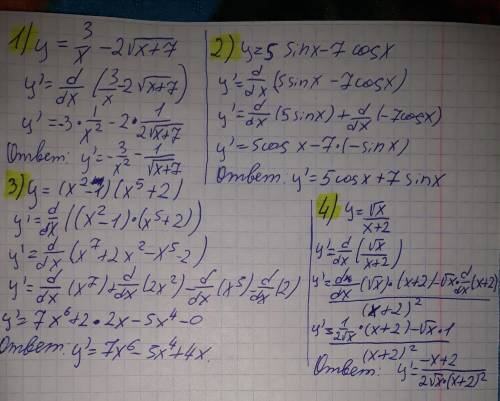 1) y = 3/x - 2√x+7
y' = d/dx (3/x - 2√x+7)
y' = -3 · 1/x² - 2 · 1/2√x+7
Ответ: y' = -3/x² - 1/√x+7
2) y = 5 sinx - 7 cosx
y' = d/dx (5sinx - 7cosx)
y' = d/dx (5sinx) + d/dx (-7cosx)
y' = 5cos x - 7 · (-sinx)
Ответ. y' = 5cosx + 7 sinx
3) y = (x² - 1) (x⁵ + 2)
y' = d/dx ((x² - 1) · (x⁵ + 2))
y' = d/dx (x⁷ + 2x² - x⁵ - 2)
y' = d/dx (x⁷) + d/dx (2x²) - d/dx (x⁵) - d/dx (2)
y' = 7x⁶ + 2 · 2x - 5x⁴ - 0
Ответ: y' = 7x⁶ - 5x⁴ + 4x.
4) y = √x/x+2
y' = d/dx (√x/x+2)
y' = d/dx (√x) · (x+2) - √x · d/dx (x+2) / (x+2)²
y' = 1/2√x · (x+2) - √x · 1 / (x+2)²
Ответ: y' = -x+2 / 2√x · (x+2)²